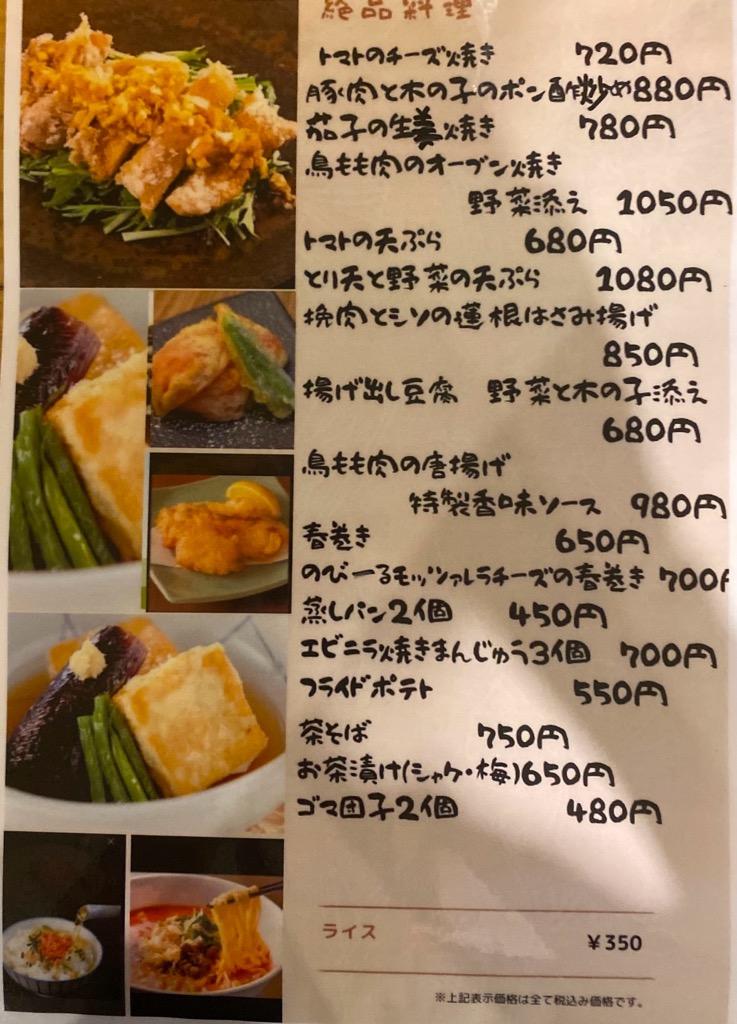 絶品料理
トマトのチーズ焼き 720円
豚肉と木の子のポン酢炒め880円
茄子の生姜焼き 780円
鳥もも肉のオーブン焼き
野菜添え 1050円
トマトの天ぷら 680円
とり天と野菜の天ぷら 1080円
挽肉とシソの蓮根はさみ揚げ
850円
揚げ出し豆腐 野菜と木の子添え
680円
鳥もも肉の唐揚げ
特製香味ソース 980円
春巻き 650円
のびーるモッツァレラチーズの春巻き 700円
蒸しパン2個 450円
エビニラ焼きまんじゅう3個 700円
フライドポテト 550円
茶そば 750円
お茶漬け(シャケ・梅)650円
ゴマ団子2個 480円
ライス ¥350
※上記表示価格は全て税込み価格です。